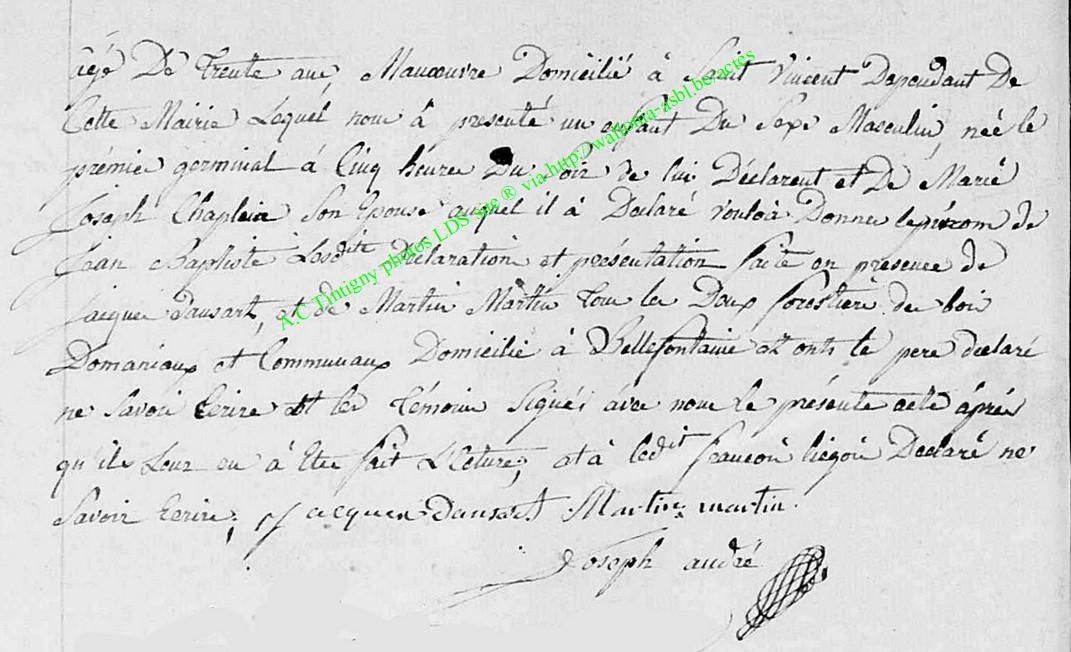 agé De trente ans Manoeuvre Domicilié à Saint Vincent Dependant De
Cette Mairie Lequel nous à presenté un enfant Du Sexe Masculin, née le
prémie germinal à Cinq héure Du Soir de lui Déclarent et De Marie
Joseph Chapleia Son Epouse auquel il à Declaré vouloir Donner le prénom de
Jean Baptiste Lesdite déclaration et présentation faite en présence de
Jacque dausart, et de Martin Martin tous les Deux forestiers de bois
Domaniaux et Communaux Domicilié à Bellefontaine et onts le pere déclaré
ne Savoir Ecrire et les témoins Signés avec nous le présente acte áprés
qu'ils Leur en à été fait L'Cture, et à ledit francois liégois Déclaré ne
Savoir Ecrire, Jacques Dausart Martin martin.
Joseph andré
A.C Tintigny photos LDS site ® via http://wallonia-asbl.be/actes